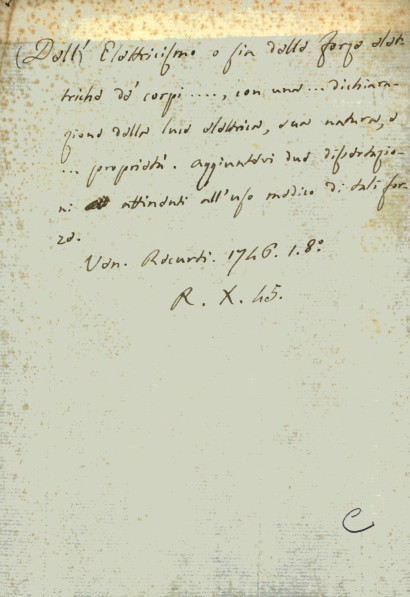 (Dell') Elettricismo o sia delle forze elet-
triche de' corpi ....., con una ... dichiara-
zione della luce elettrica, sua natura, e
... proprietà. Aggiuntevi due dissertazio-
ni attinenti all'uso medico di tali for-
ze.
Ven. Recurti. 1746. 1. 8.°
R. X. 45.
C